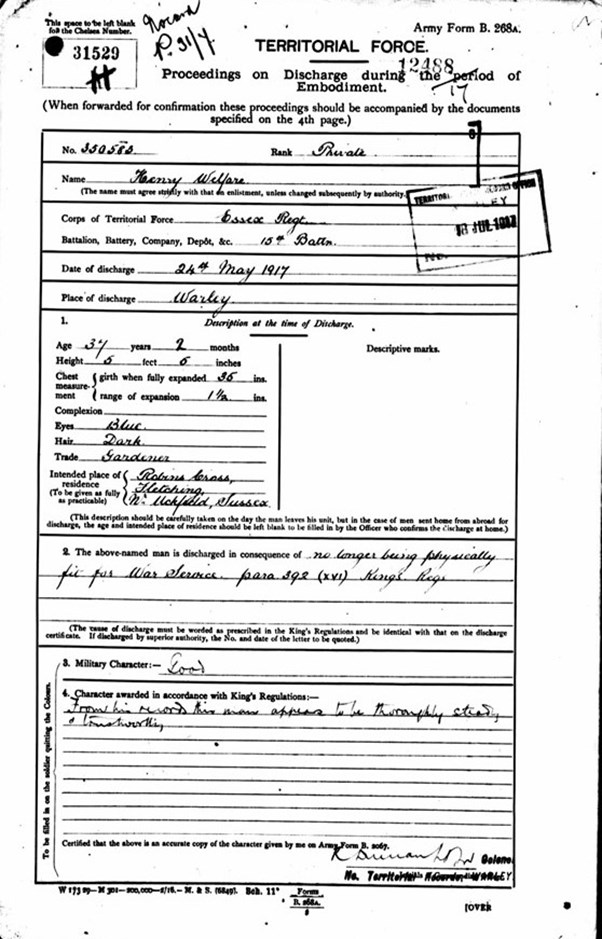 This space to be left blank
for the Chelsea Number.
31529
P. 31/7
Army Form B. 268A.
TERRITORIAL FORCE.
12488
/17
Proceedings on Discharge during the period of
Embodiment.
(When forwarded for confirmation these proceedings should be accompanied by the documents
specified on the 4th page.)
No. 350583 Rank Private
Name Henry Welfare
(The name must agree strictly with that on enlistment, unless changed subsequently by authority.)
Corps of Territorial Force Essex Regt.
Battalion, Battery, Company, Depôt, &c. 15th Battn.
Date of discharge 24th May 1917
Place of discharge Warley
1. Description at the time of Discharge.
Age 37 years 2 months
Height 5 feet 5 inches
Descriptive marks.
Chest measurement
girth when fully expanded 35 ins.
range of expansion 1½ ins.
Complexion
Eyes Blue.
Hair Dark.
Trade Gardener
Intended place of residence
(To be given as fully as practicable)
Robins Cross,
Fletching,
Nr. Uckfield, Sussex
(This description should be carefully taken on the day the man leaves his unit, but in the case of men sent home from abroad for
discharge, the age and intended place of residence should be left blank to be filled in by the Officer who confirms the discharge at home.)
2. The above-named man is discharged in consequence of no longer being physically
fit for War Service. para 392 (XVI) Kings Regs
(The cause of discharge must be worded as prescribed in the King's Regulations and be identical with that on the discharge
certificate. If discharged by superior authority, the No. and date of the letter to be quoted.)
To be filled in on the soldier quitting the Colours.
3. Military Character:— Good
4. Character awarded in accordance with King's Regulations:—
From his record this man appears to be thoroughly steady
& trustworthy
Certified that the above is an accurate copy of the character given by me on Army Form B. 2067.
Colonel
WARLEY
W 17329—M 301—200,000—5/16.—M. & S. (6849). Sch. 11. Forms
B. 268A.
[OVER